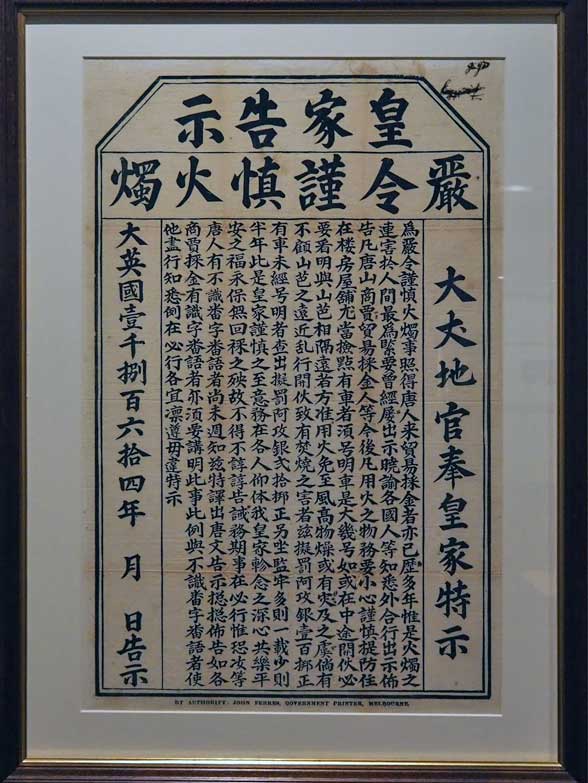 皇家告示
嚴令謹慎火燭
大夫地官奉皇家特示
為嚴令謹慎火燭事照得唐人来貿易採金者亦已歷多年惟是火燭之
連害扵人間最為緊要曾經屢出示曉諭各國人等知悉外合行出示佈
告凡唐山商賈貿易採金人等令後凡用火之物務要小心謹慎提防住
在楼房屋舖尤當撿點有車者須号明車是大幾号如或在中途開伙必
要看明與山芭相隔遠者方准用火免至風高物燥或有灾及之虞倘有
不顧山芭之遠近乱行開伙致有焚燒之害者兹擬罰阿攻銀壹百挷正
有車未經号明者查出擬罰阿攻銀弍拾挷正另坐監牢多則一載少則
半年此是皇家謹慎之至意務在各人仰体我皇家軫念之深心共樂平
安之福永保無回祿之殃故不得不諄諄告誡務期事在必行惟恐汝等
唐人有不識畨字畨語者尚未週知兹特譯出唐文告示摠摠佈告如各
商賈採金有識字畨語者亦須要講明此事此例與不識畨字畨語者使
他盡行知悉例在必行各宜凛遵毋違特示
大英國壹千捌百六拾四年 月 日告示
BY AUTHORITY: JOHN FERRES, GOVERNMENT PRINTER, MELBOURNE.